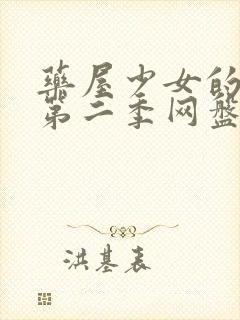 藥屋少女的
第二季网盘
洪基表